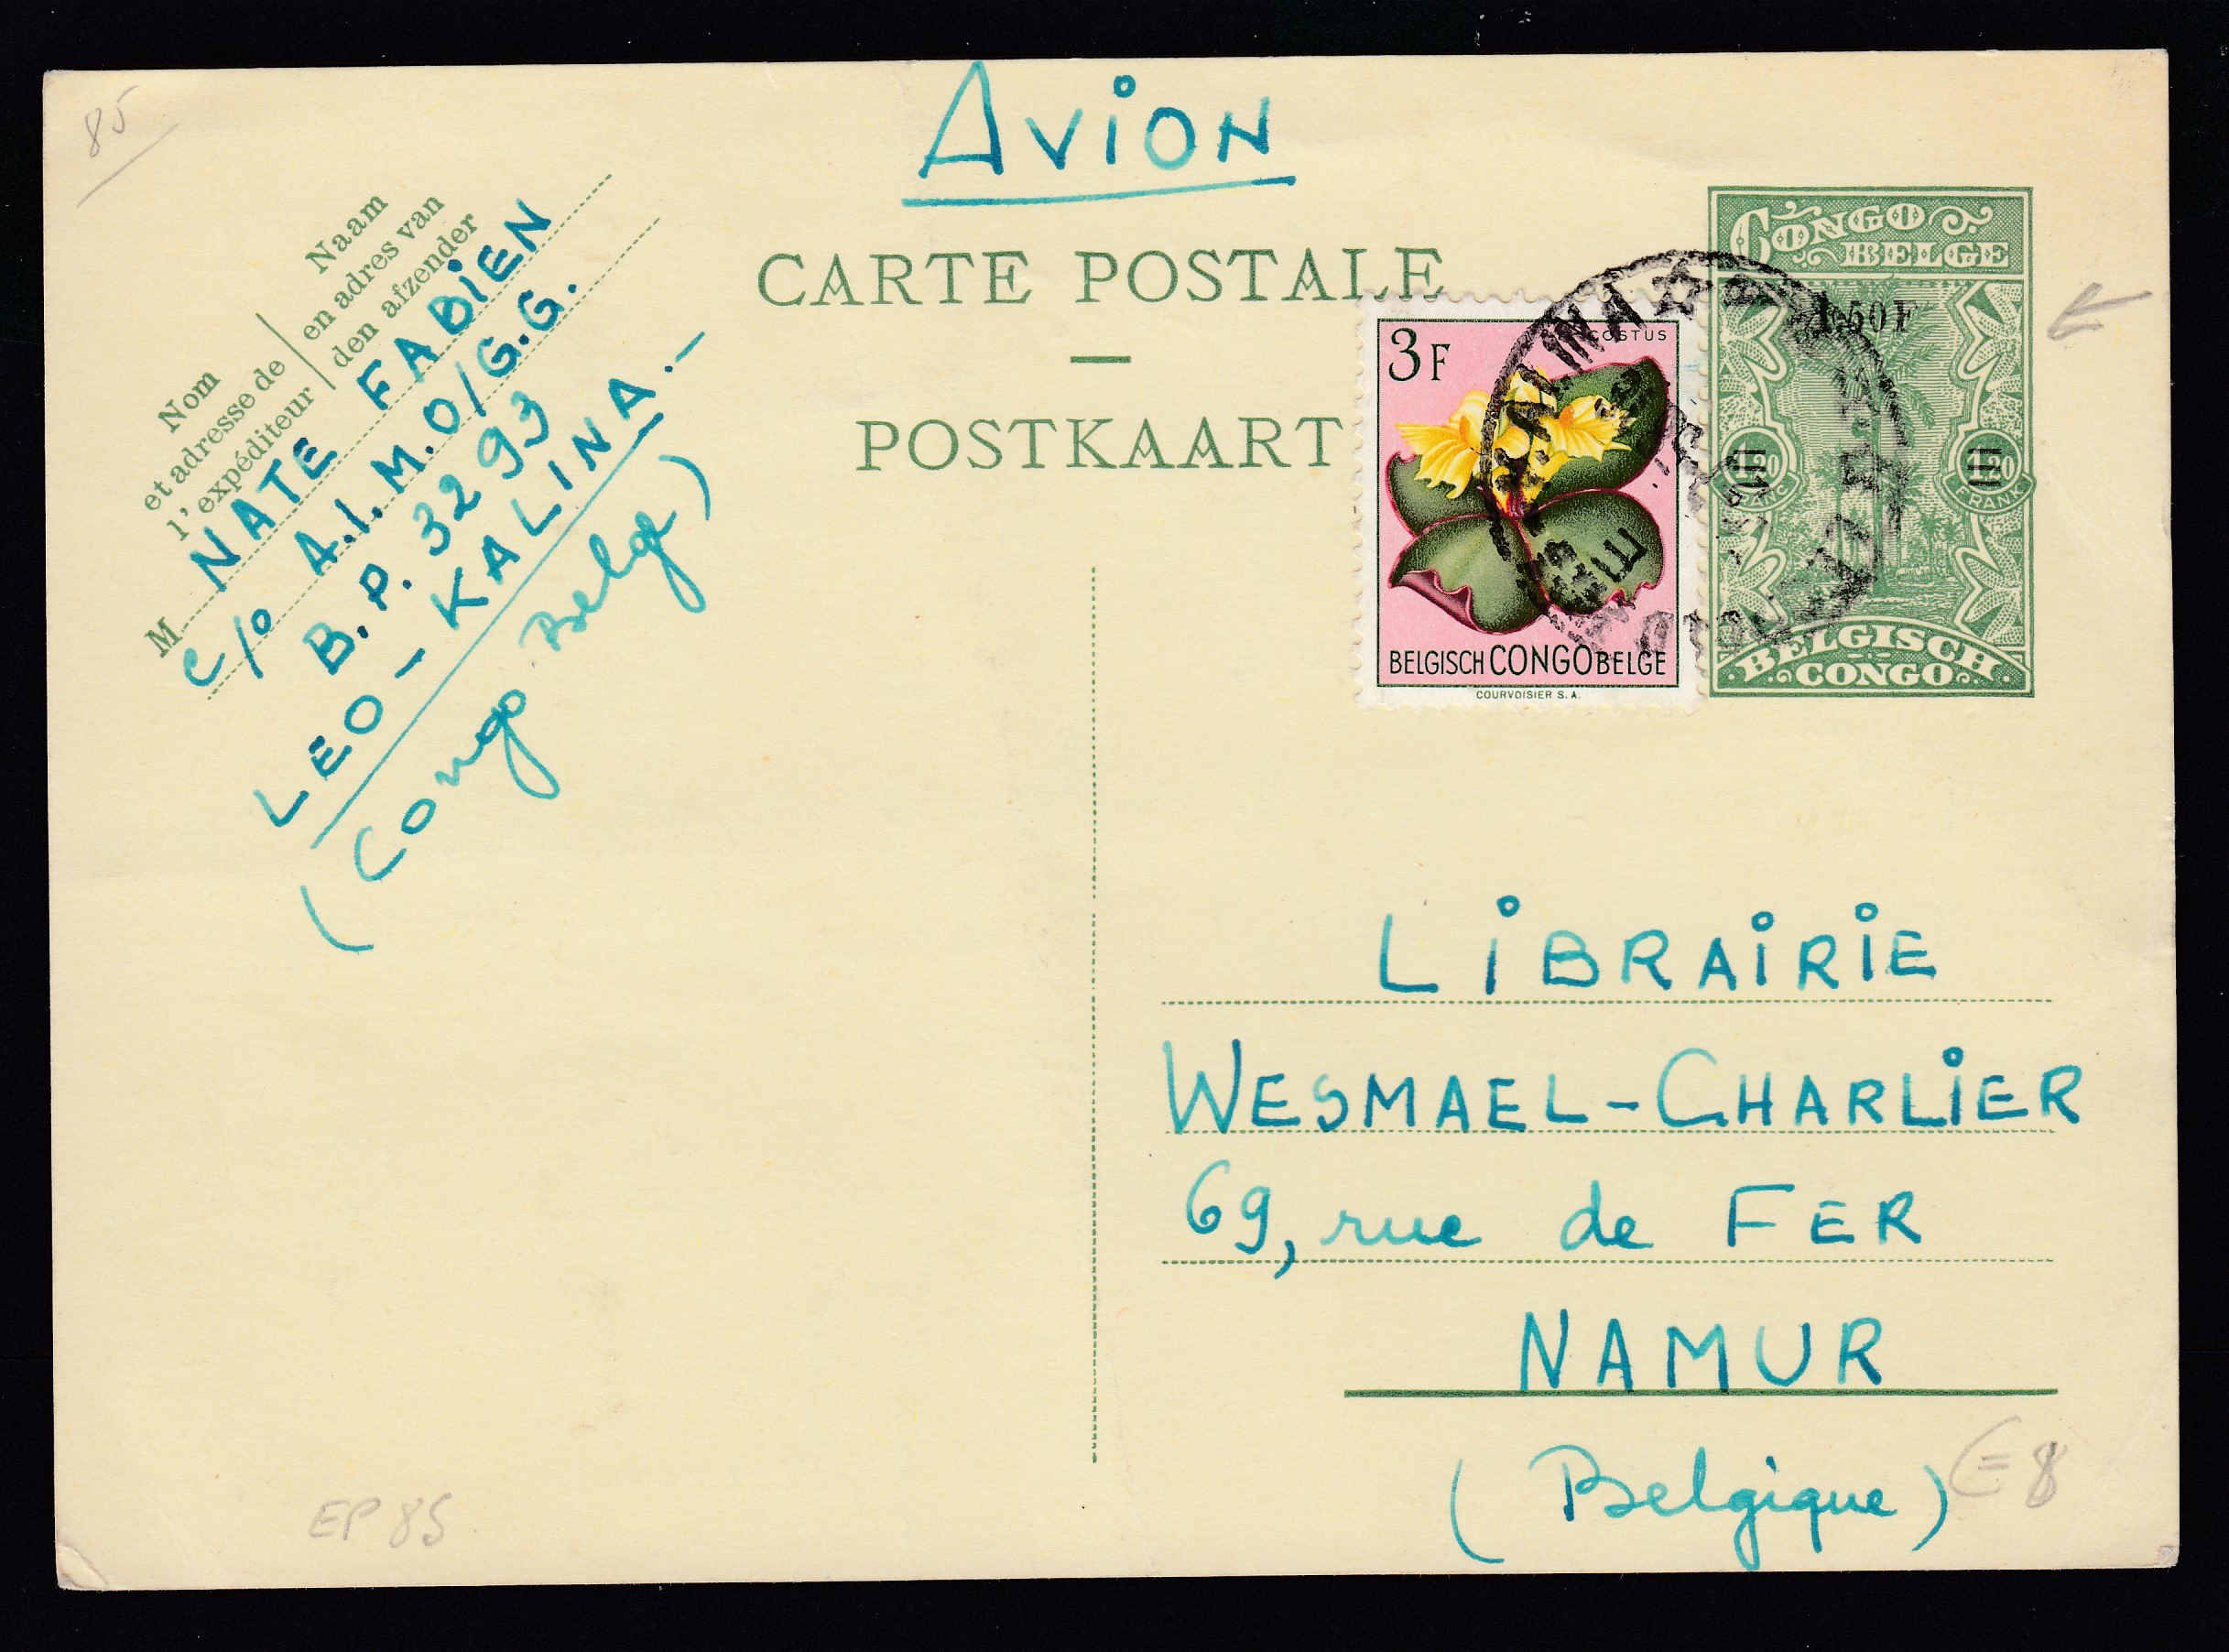 85
AVION
Nom
et adresse de
l'expéditeur
Naam
en adres van
den afzender
M NATE FABIEN
c/o A.I.M.O/G.G.
B.P. 3293
LEO - KALINA.-
(Congo Belge)
CARTE POSTALE
—
POSTKAART
3F
COSTUS
BELGISCH CONGO BELGE
COURVOISIER S.A.
KALINA
CONGO
BELGE
1.50F
1.20 1.20
FRANK
BELGISCH
CONGO
LIBRAIRIE
WESMAEL-CHARLIER
69, rue de FER
NAMUR
(Belgique)
EP 85